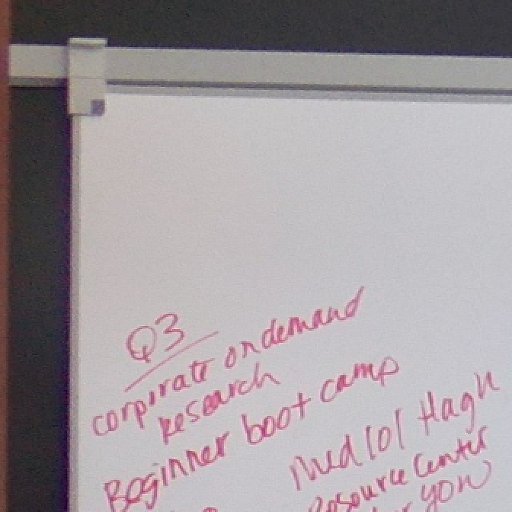 Q3
corporate on demand
research
Beginner boot camp
Med 101
Resource Center
you